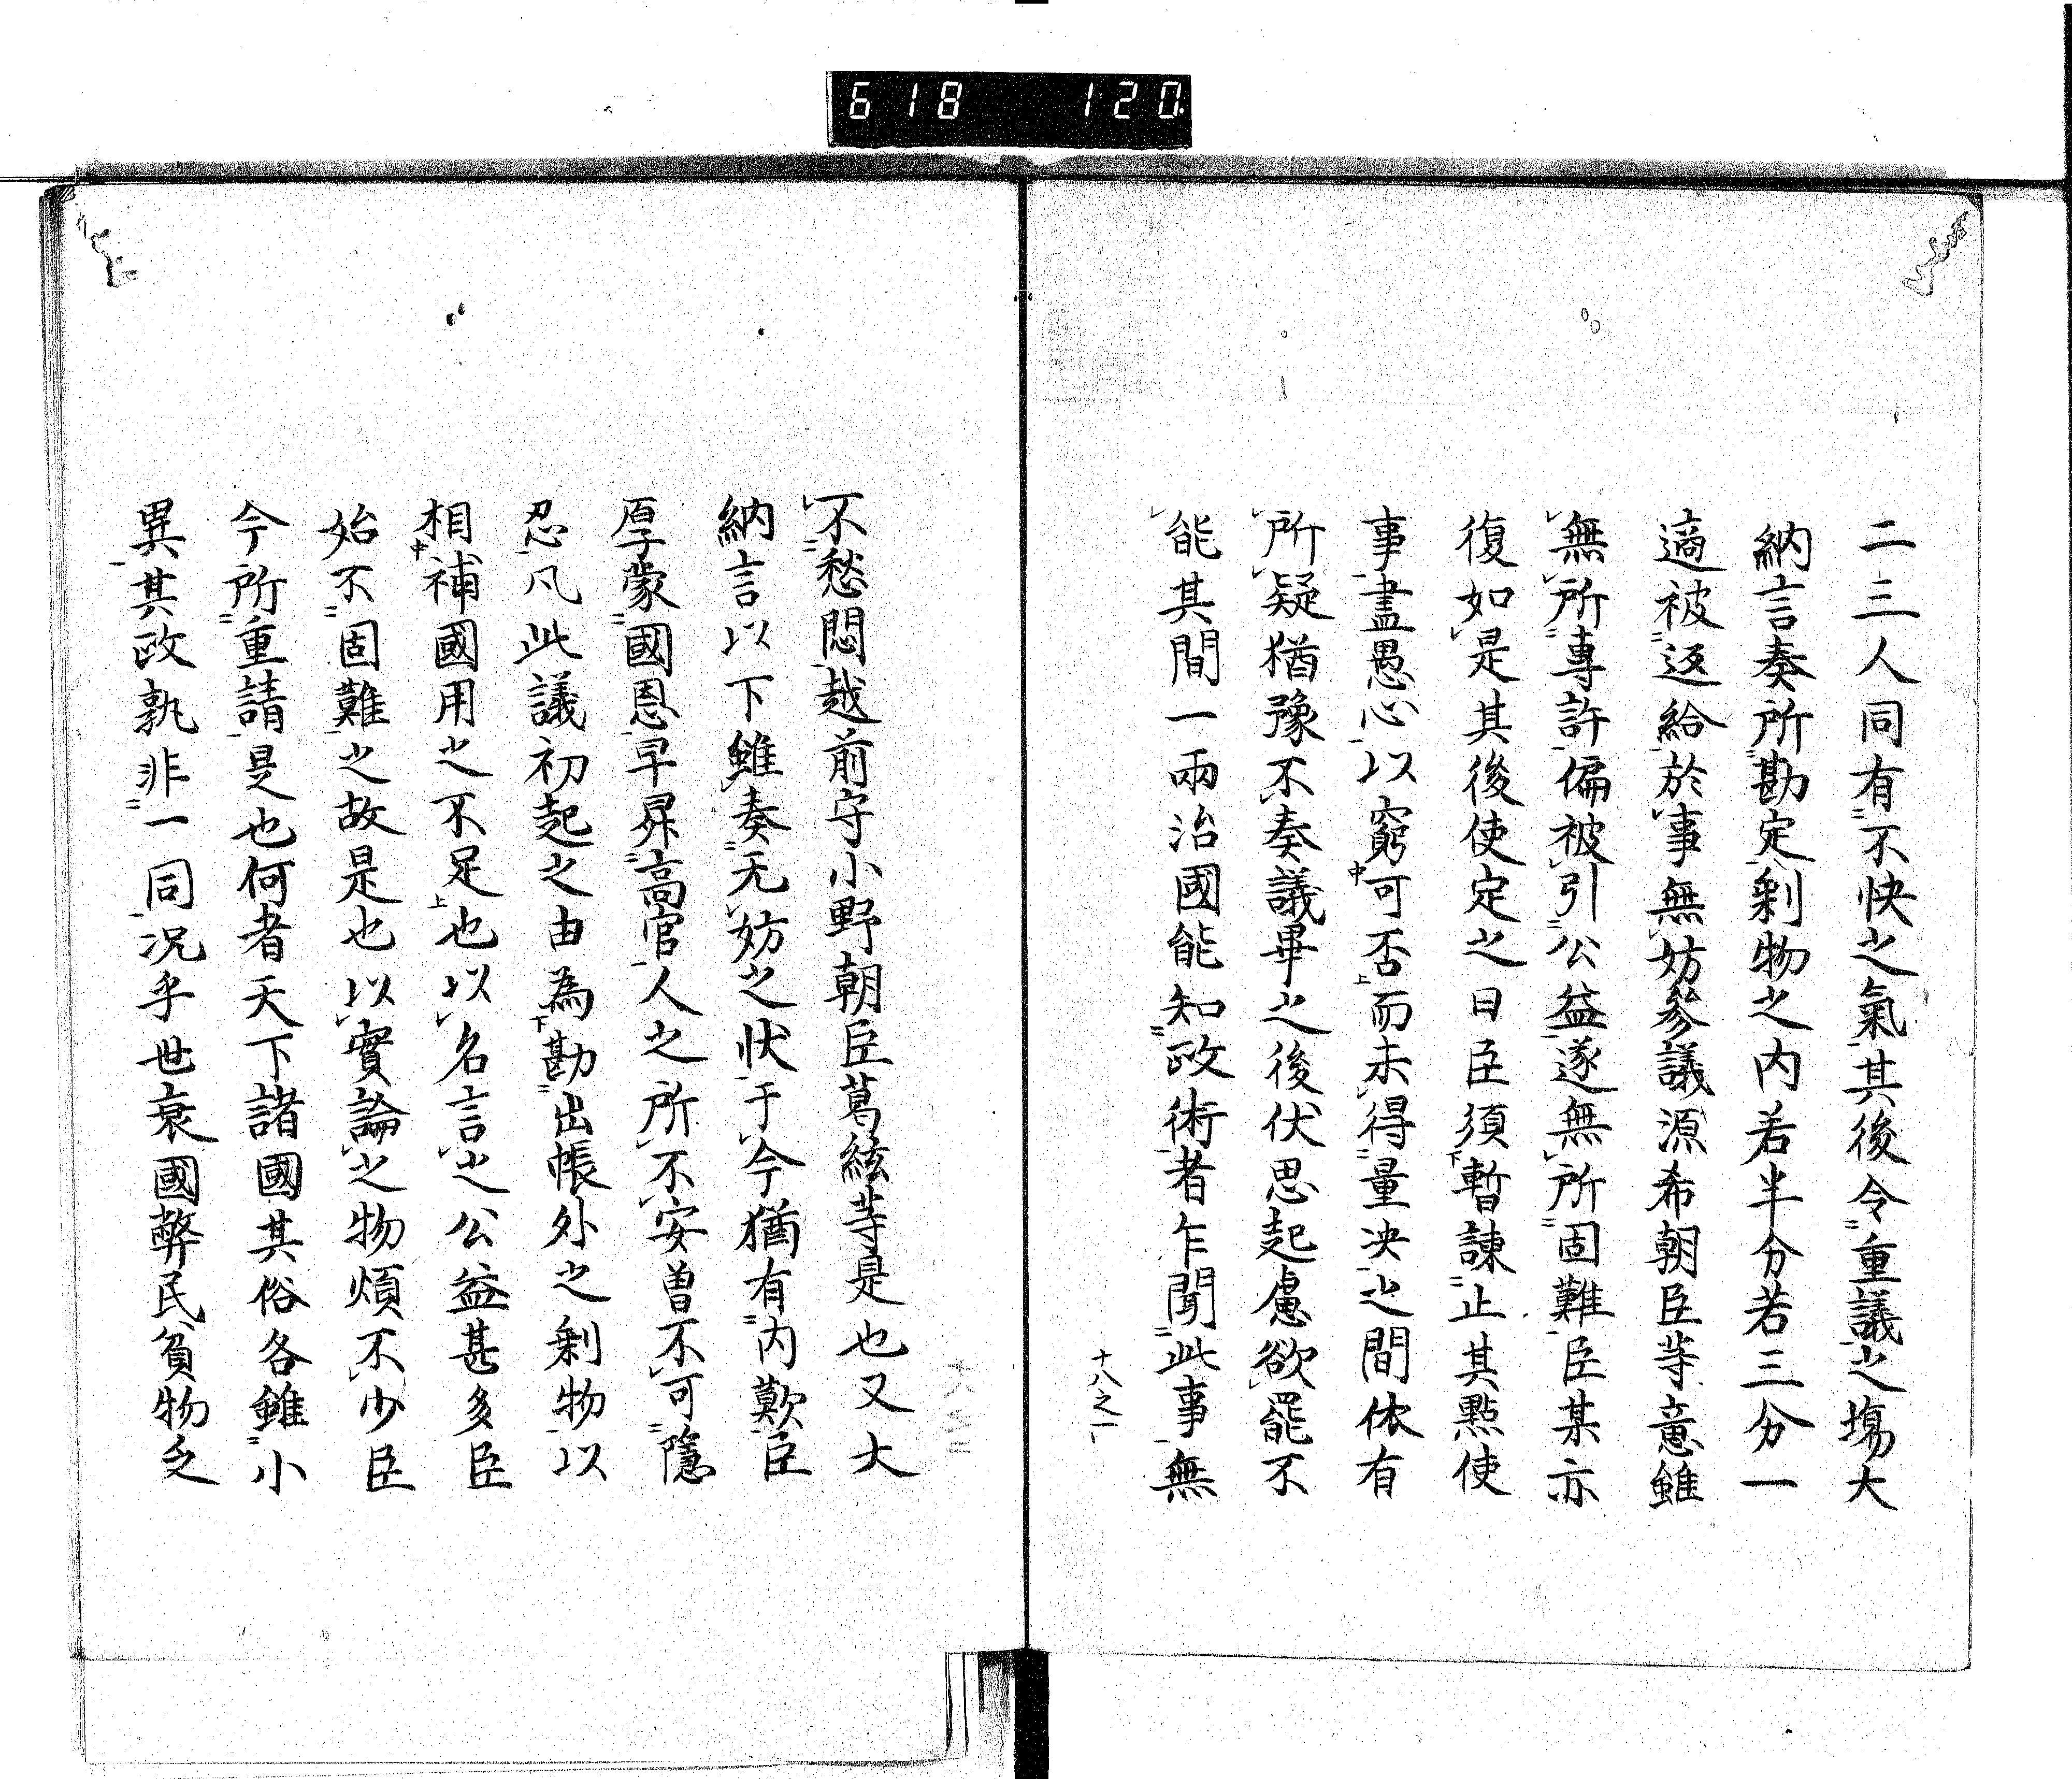 618 120
二三人同有不快之氣其後令重議之塲大
納言奏所勘定剰物之内若半分若三分一
適被返給於事無妨參議源希朝臣等意雖
無所專許偏被引公益遂無所固難臣某亦
復如是其後使定之日臣須暫諫止其點使
事盡愚心以窮可否而未得量决之間依有
所疑猶豫不奏議畢之後伏思起慮欲罷不
能其間一兩治國能知政術者乍聞此事無
十八之一
不愁悶越前守小野朝臣葛絃等是也又大
納言以下雖奏无妨之状于今猶有内歎臣
厚蒙國恩早昇高官人之所不安曽不可隱
忍凡此議初起之由為勘出帳外之剰物以
相補國用之不足也以名言之公益甚多臣
始不固難之故是也以實論之物煩不少臣
今所重請是也何者天下諸國其俗各雖小
異其政孰非一同况乎世衰國弊民貧物乏